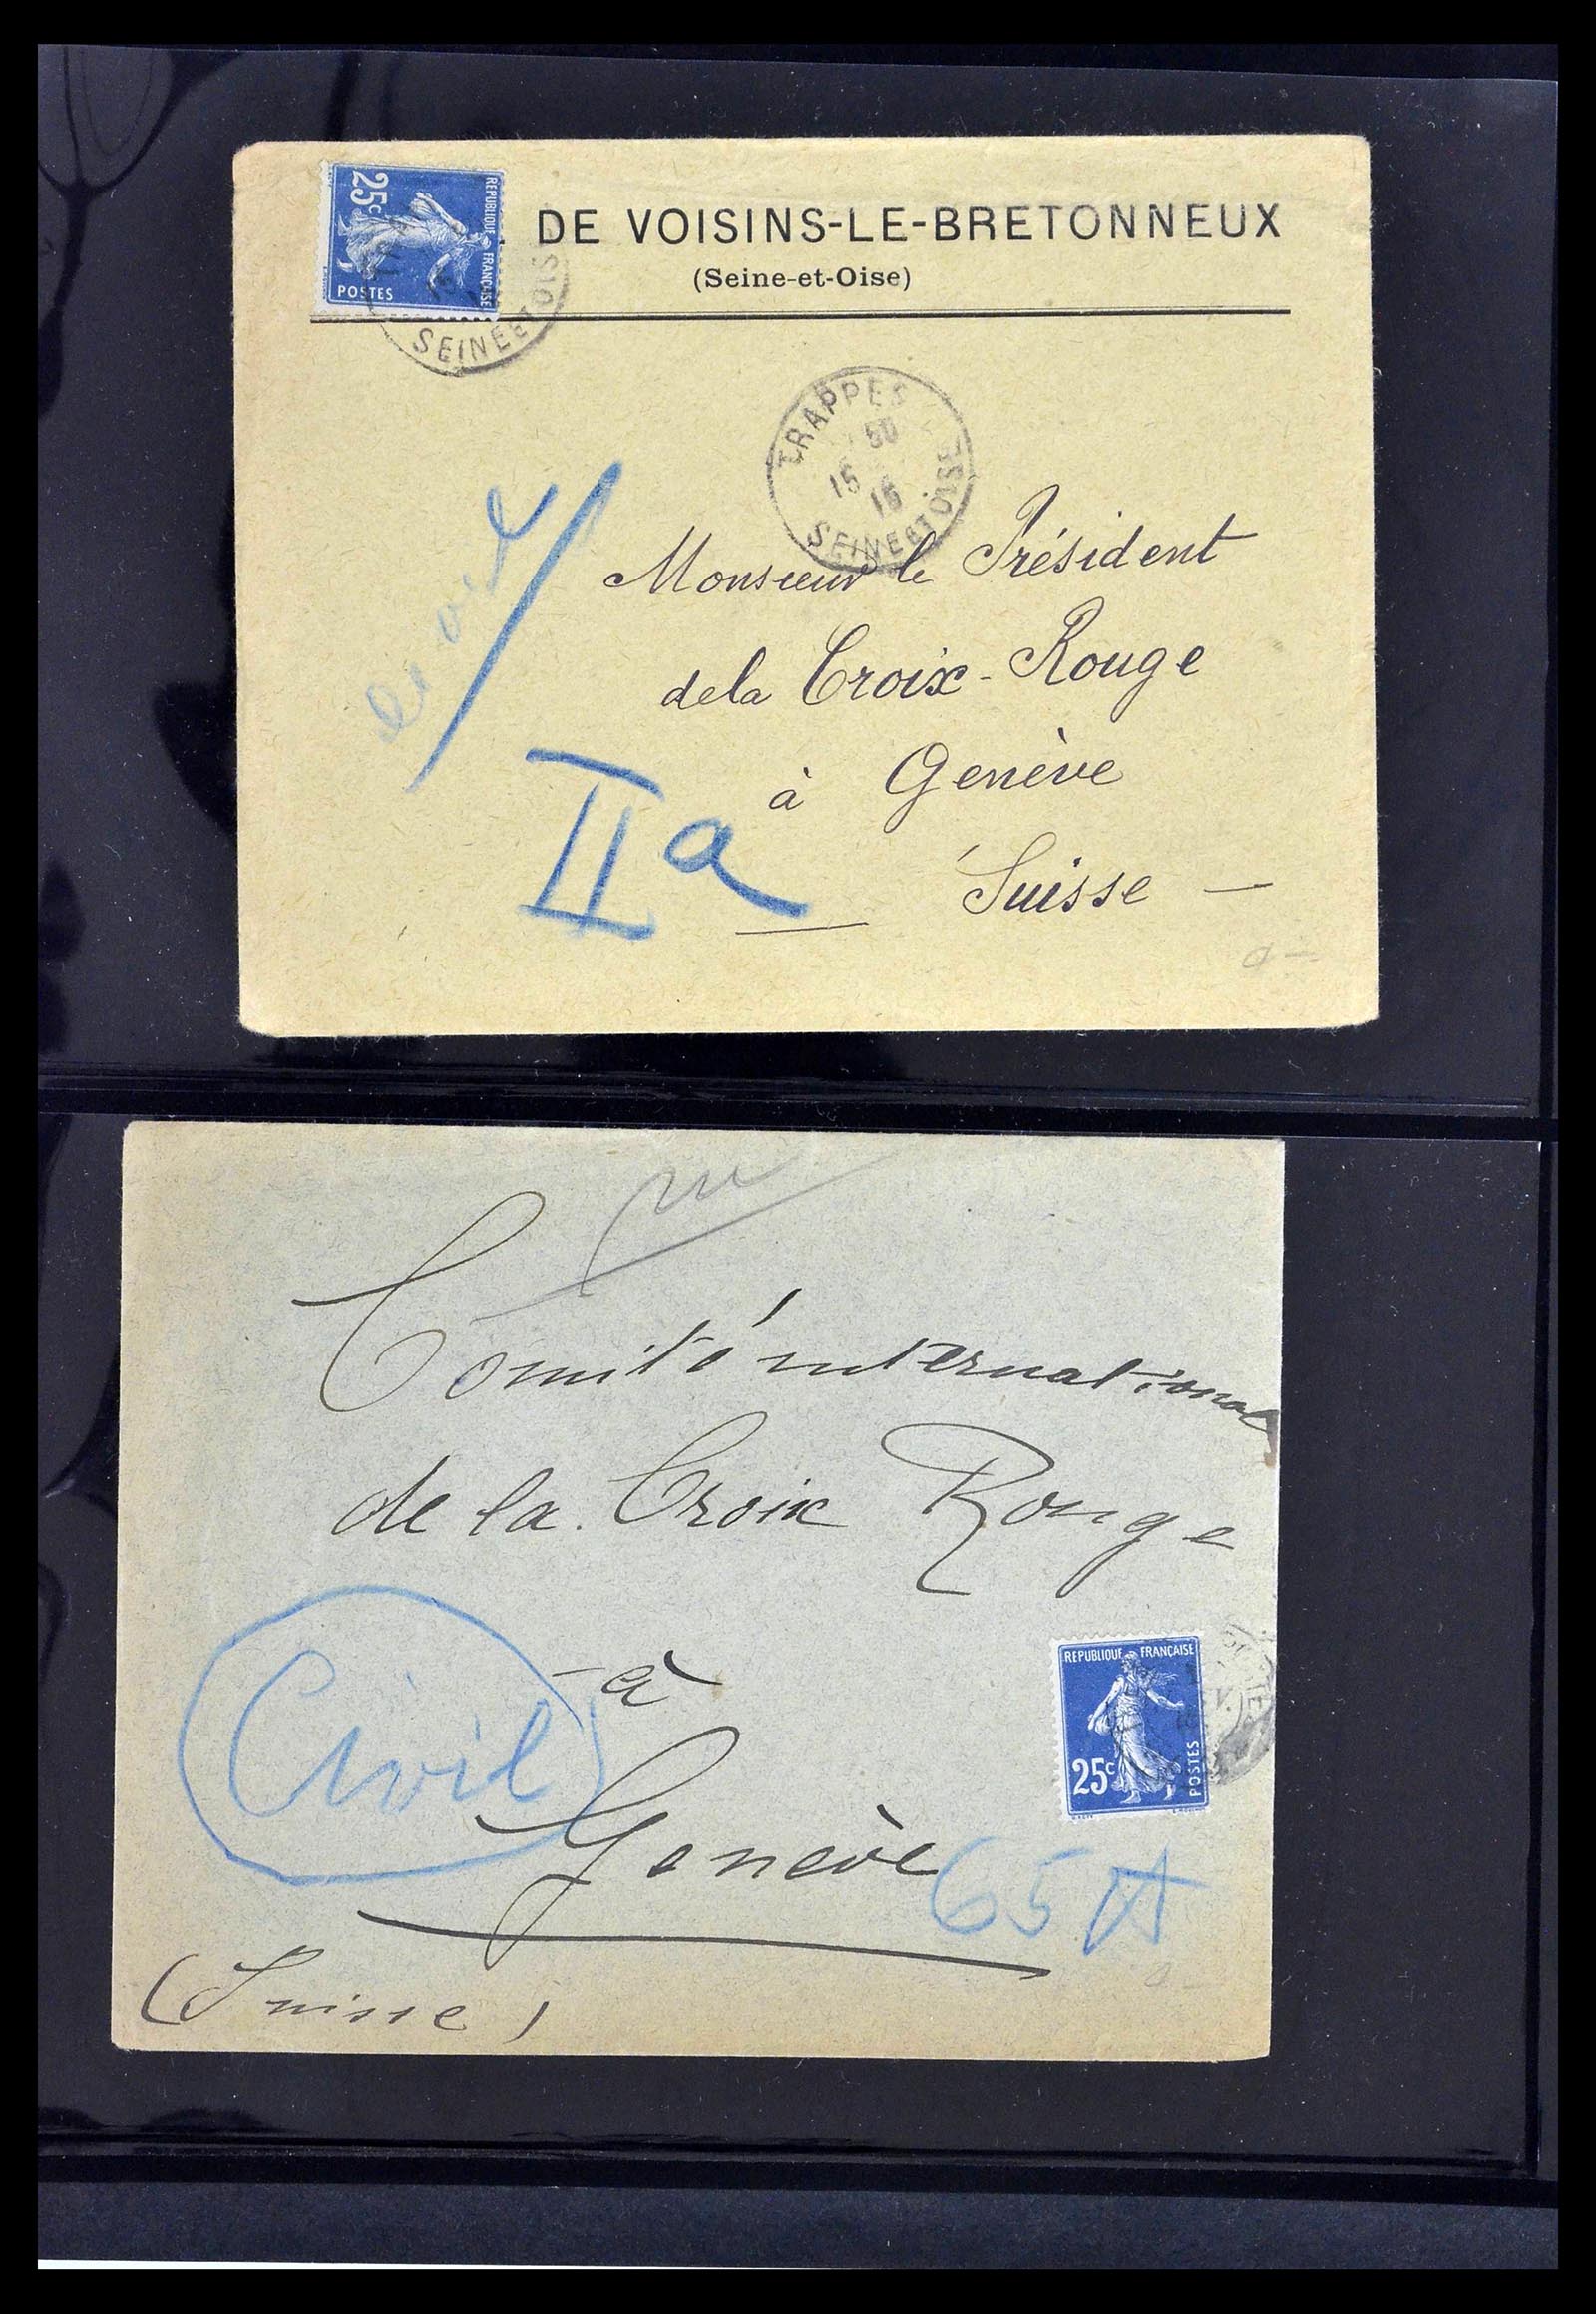 DE VOISINS-LE-BRETONNEUX
(Seine-et-Oise)
25c
REPUBLIQUE FRANÇAISE
POSTES
SEINE ET OISE
TRAPPES
50
15
16
SEINE ET OISE
Monsieur le Président
de la Croix-Rouge
à Genève
Suisse —
civil
IIa
Comité international
de la Croix Rouge
- à
Genève
(Suisse)
Civil
REPUBLIQUE FRANÇAISE
25c
POSTES
65 A